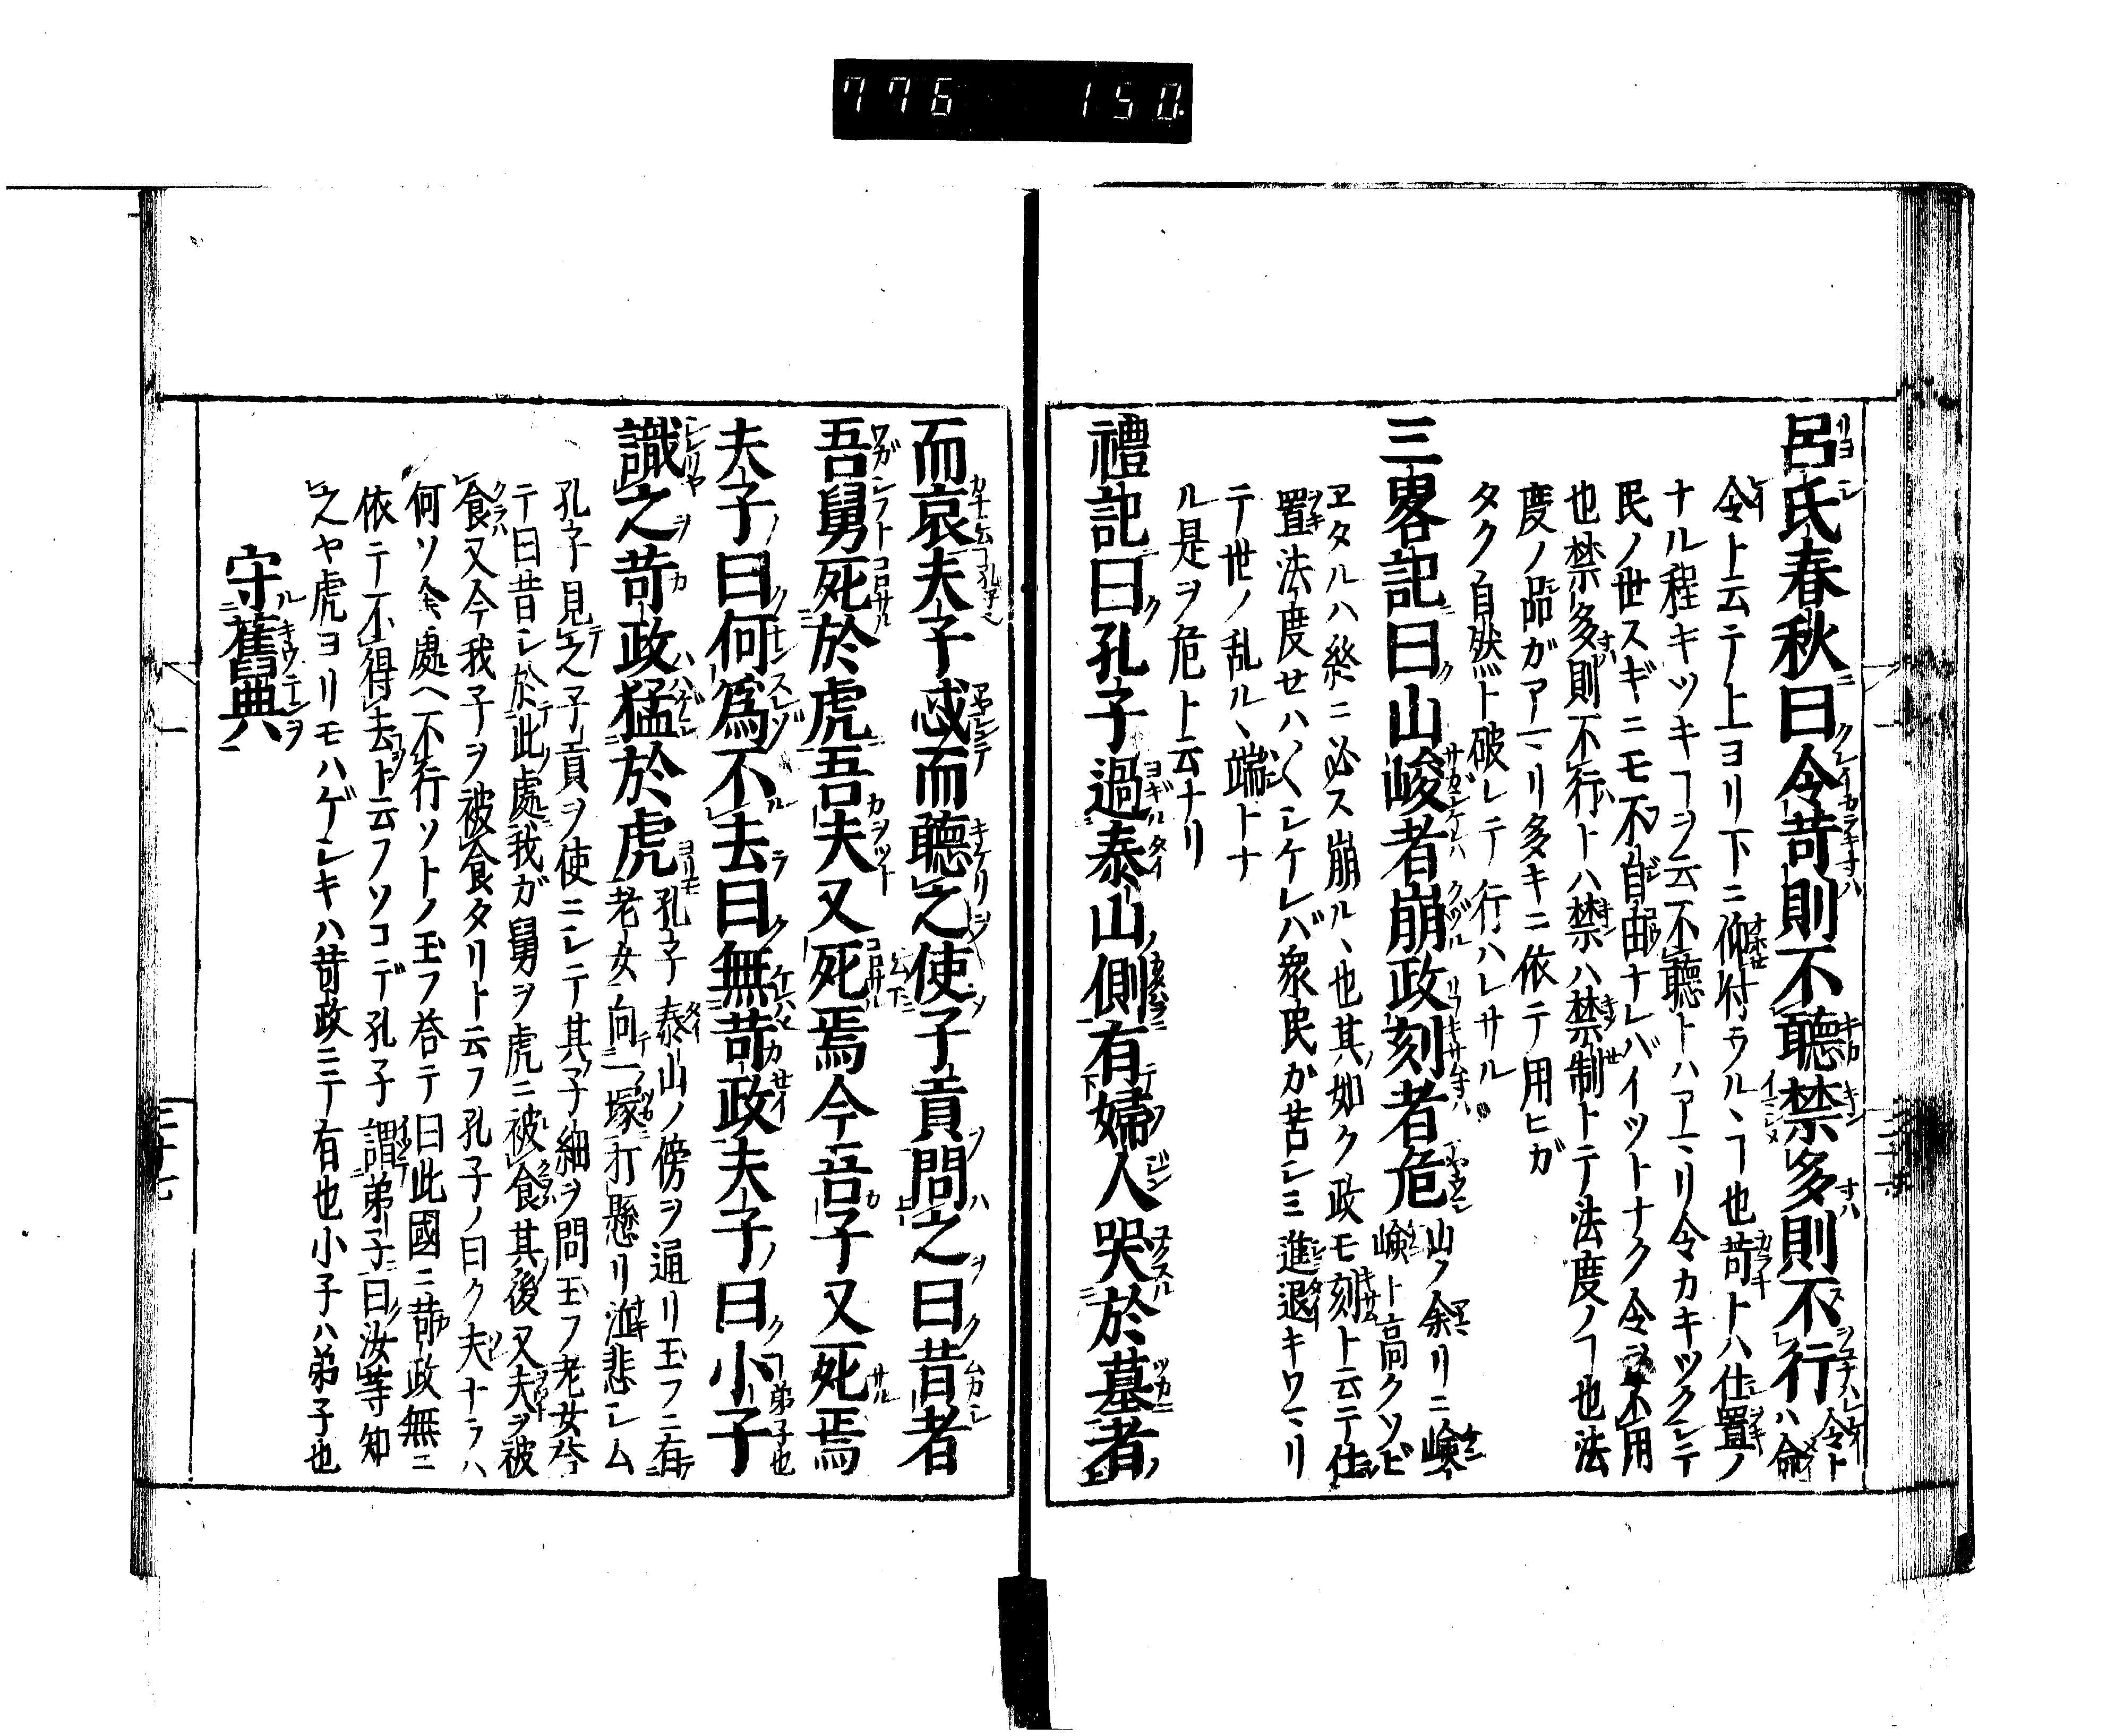 776 150
呂氏春秋曰令苛則不聽禁多則不行令ト
ハ命
令ト云テ上ヨリ下ニ仰付ラルヽヿ也苛トハ仕置ノ
ナル程キツキヿヲ云不聽トハアマリ令カキツクシテ
民ノ世スギニモ不自由ナレバイツトナク令ヲ不用
也禁多則不行トハ禁ハ禁制トテ法度ノヿ也法
度ノ品ガアマリ多キニ依テ用ヒガ
タク自然ト破レテ行ハレサル
三畧記曰山峻者崩政刻者危山ノ余リニ嶮
嶮ト高クソビ
ヱタルハ終ニ必ス崩ルヽ也其如ク政モ刻ト云テ仕
置法度せハ〱シケレバ衆民が苦シミ進退キワマリ
テ世ノ乱ルヽ端トナ
ル是ヲ危ト云ナリ
禮記曰孔子過泰山側有婦人哭於墓者
而哀夫子惑而聽之使子貢問之曰昔者
吾舅死於虎吾夫又死焉今吾子又死焉
夫子曰何爲不去曰無苛政夫子曰小子
識之苛政猛於虎孔子泰山ノ傍ヲ通リ玉フニ有
老女向一塚打懸リ泣悲シム
孔子見之子貢ヲ使ニシテ其子細ヲ問玉フ老女答
テ曰昔シ於此處我ガ舅ヲ虎ニ被食其後又夫ヲ被
食又今我子ヲ被食タリト云フ孔子ノ曰ク夫ナラハ
何ソ余處ヘ不行ソトノ玉フ答テ曰此國ニ苛政無ニ
依テ不得去ト云フソコデ孔子謂弟子曰汝等知
之ヤ虎ヨリモハゲシキハ苛政ニテ有也小子ハ弟子也
守舊典